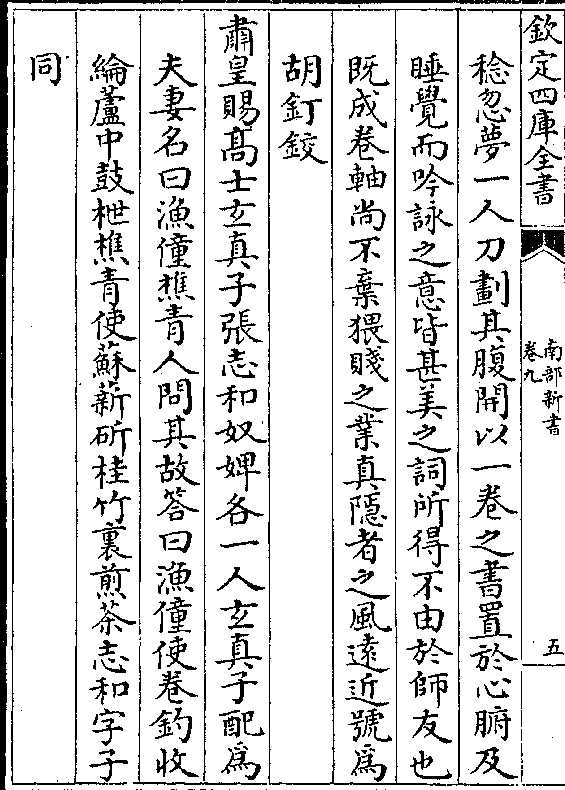 欽定四庫全書
南部新書
卷九
五
稔忽夢一人刀劃其腹開以一卷之書置於心腑及
睡覺而吟詠之意皆甚美之詞所得不由於師友也
既成卷軸尚不棄猥賤之業真隱者之風遠近號為
胡釘鉸
肅皇賜高士𤣥真子張志和奴婢各一人𤣥真子配為
夫妻名曰漁僮樵青人問其故答曰漁僮使卷釣收
綸蘆中鼓枻樵青使蘇薪斫桂竹裏煎茶志和字子
同